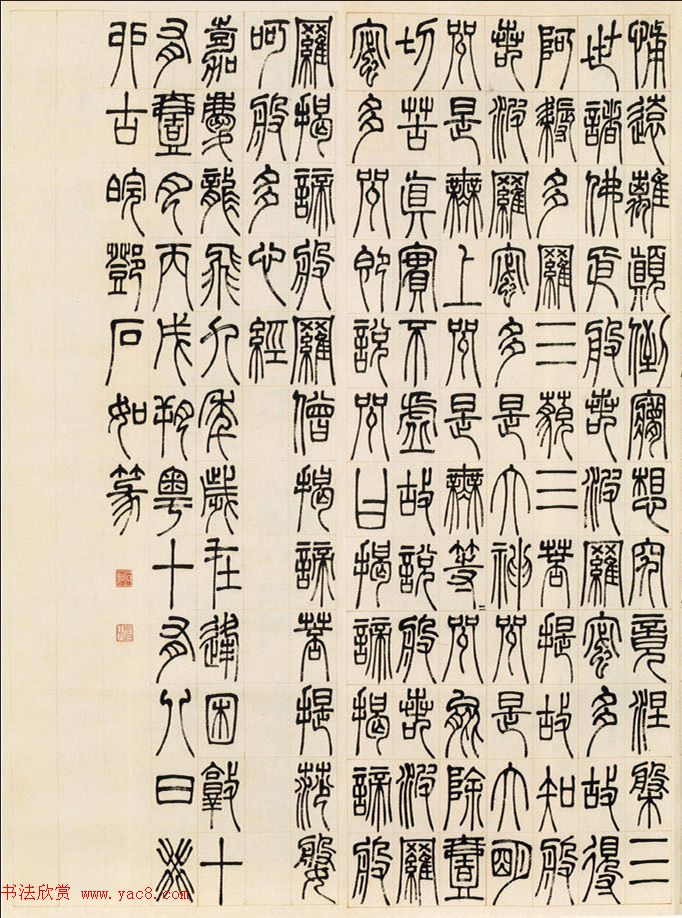 怖遠離顛倒夢想究竟涅槃三
世諸佛依般若波羅蜜多故得
阿耨多羅三藐三菩提故知般
若波羅蜜多是大神咒是大明
咒是無上咒是無等=咒能除壹
切苦真實不虛故說般若波羅
蜜多咒即說咒曰揭諦揭諦般
羅揭諦般羅僧揭諦菩提薩婆
呵般多心經
嘉慶龍飛九年歲在逢困敦十
有壹月丙戌朔粵十有八日癸
卯古皖鄧石如篆
书法欣赏 www.yac8.com